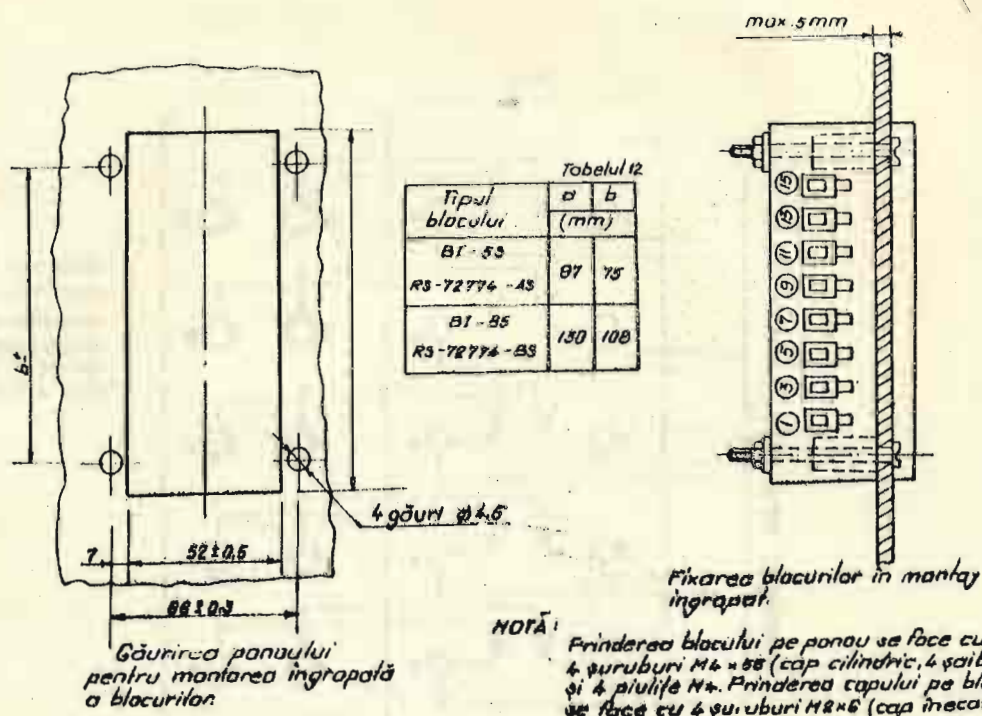 max. 5mm
Tabelul 12
Tipul blocului
a
b
(mm)
BI - 53
RS-72774 -AS
87
75
BI - 85
RS-72774 -BS
130
108
b*
15
13
11
9
7
5
3
1
4 găuri ø 4.5
7
52±0,5
66±0,3
Găurirea panoului
pentru montarea îngropată
a blocurilor.
Fixarea blocurilor în montaj
îngropat.
NOTĂ:
Prinderea blocului pe panou se face cu
4 șuruburi M4 × (cap cilindric, 4 șaib
și 4 piulițe M4. Prinderea capului pe bl
se face cu 4 șuruburi M2×6 (cap înecat